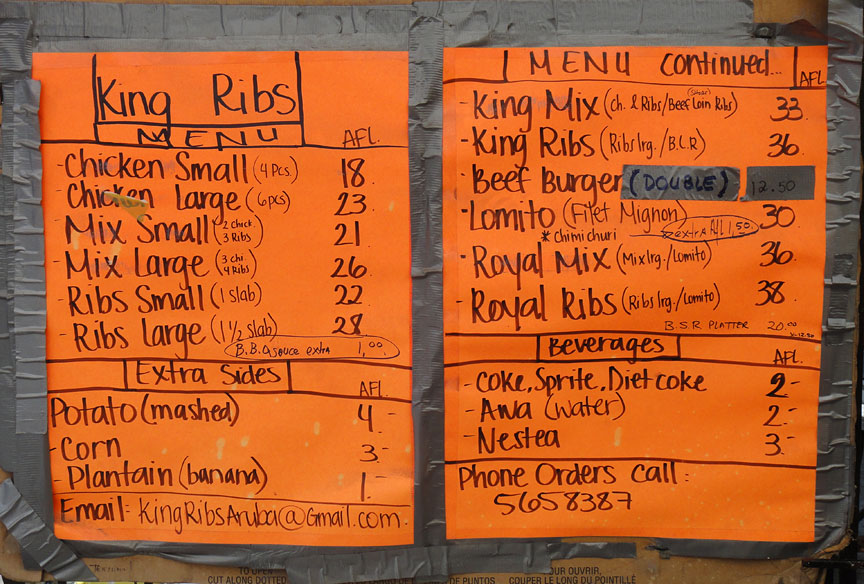 King Ribs
MENU AFL.
- Chicken Small (4 Pcs.) 18.
- Chicken Large (6pcs) 23
- Mix Small (2 Chick. 3 Ribs) 21
- Mix Large (3 chi. 4 Ribs) 26
- Ribs Small (1 slab) 22
- Ribs Large (1 1/2 slab) 28.
B.B.Q sauce extra 1,00.
Extra Sides AFL.
Potato (mashed) 4.-
- Corn 3.-
- Plantain (banana) 1.-
Email: KingRibsAruba@Gmail.com.
MENU continued... AFL.
- King Mix (Ch. & Ribs/Beef Loin Ribs) 33.
- King Ribs (Ribs lrg./B.L.R) 36.
- Beef Burger (DOUBLE) 12.50
- Lomito (Filet Mignon) 30
* chimichuri extra Afl 1,50.
- Royal Mix (Mix lrg./Lomito) 36.
- Royal Ribs (Ribs lrg./Lomito) 38.
B.S.R PLATTER 20.00
Beverages AFL.
- Coke, Sprite, Diet coke 2-
- Awa (water) 2.-
- Nestea 3.-
Phone Orders Call:
5658387
TO OPEN
CUT ALONG DOTTED
OF PUNTOS
OUR OUVRIR.
COUPER LE LONG DU POINTILLÉ